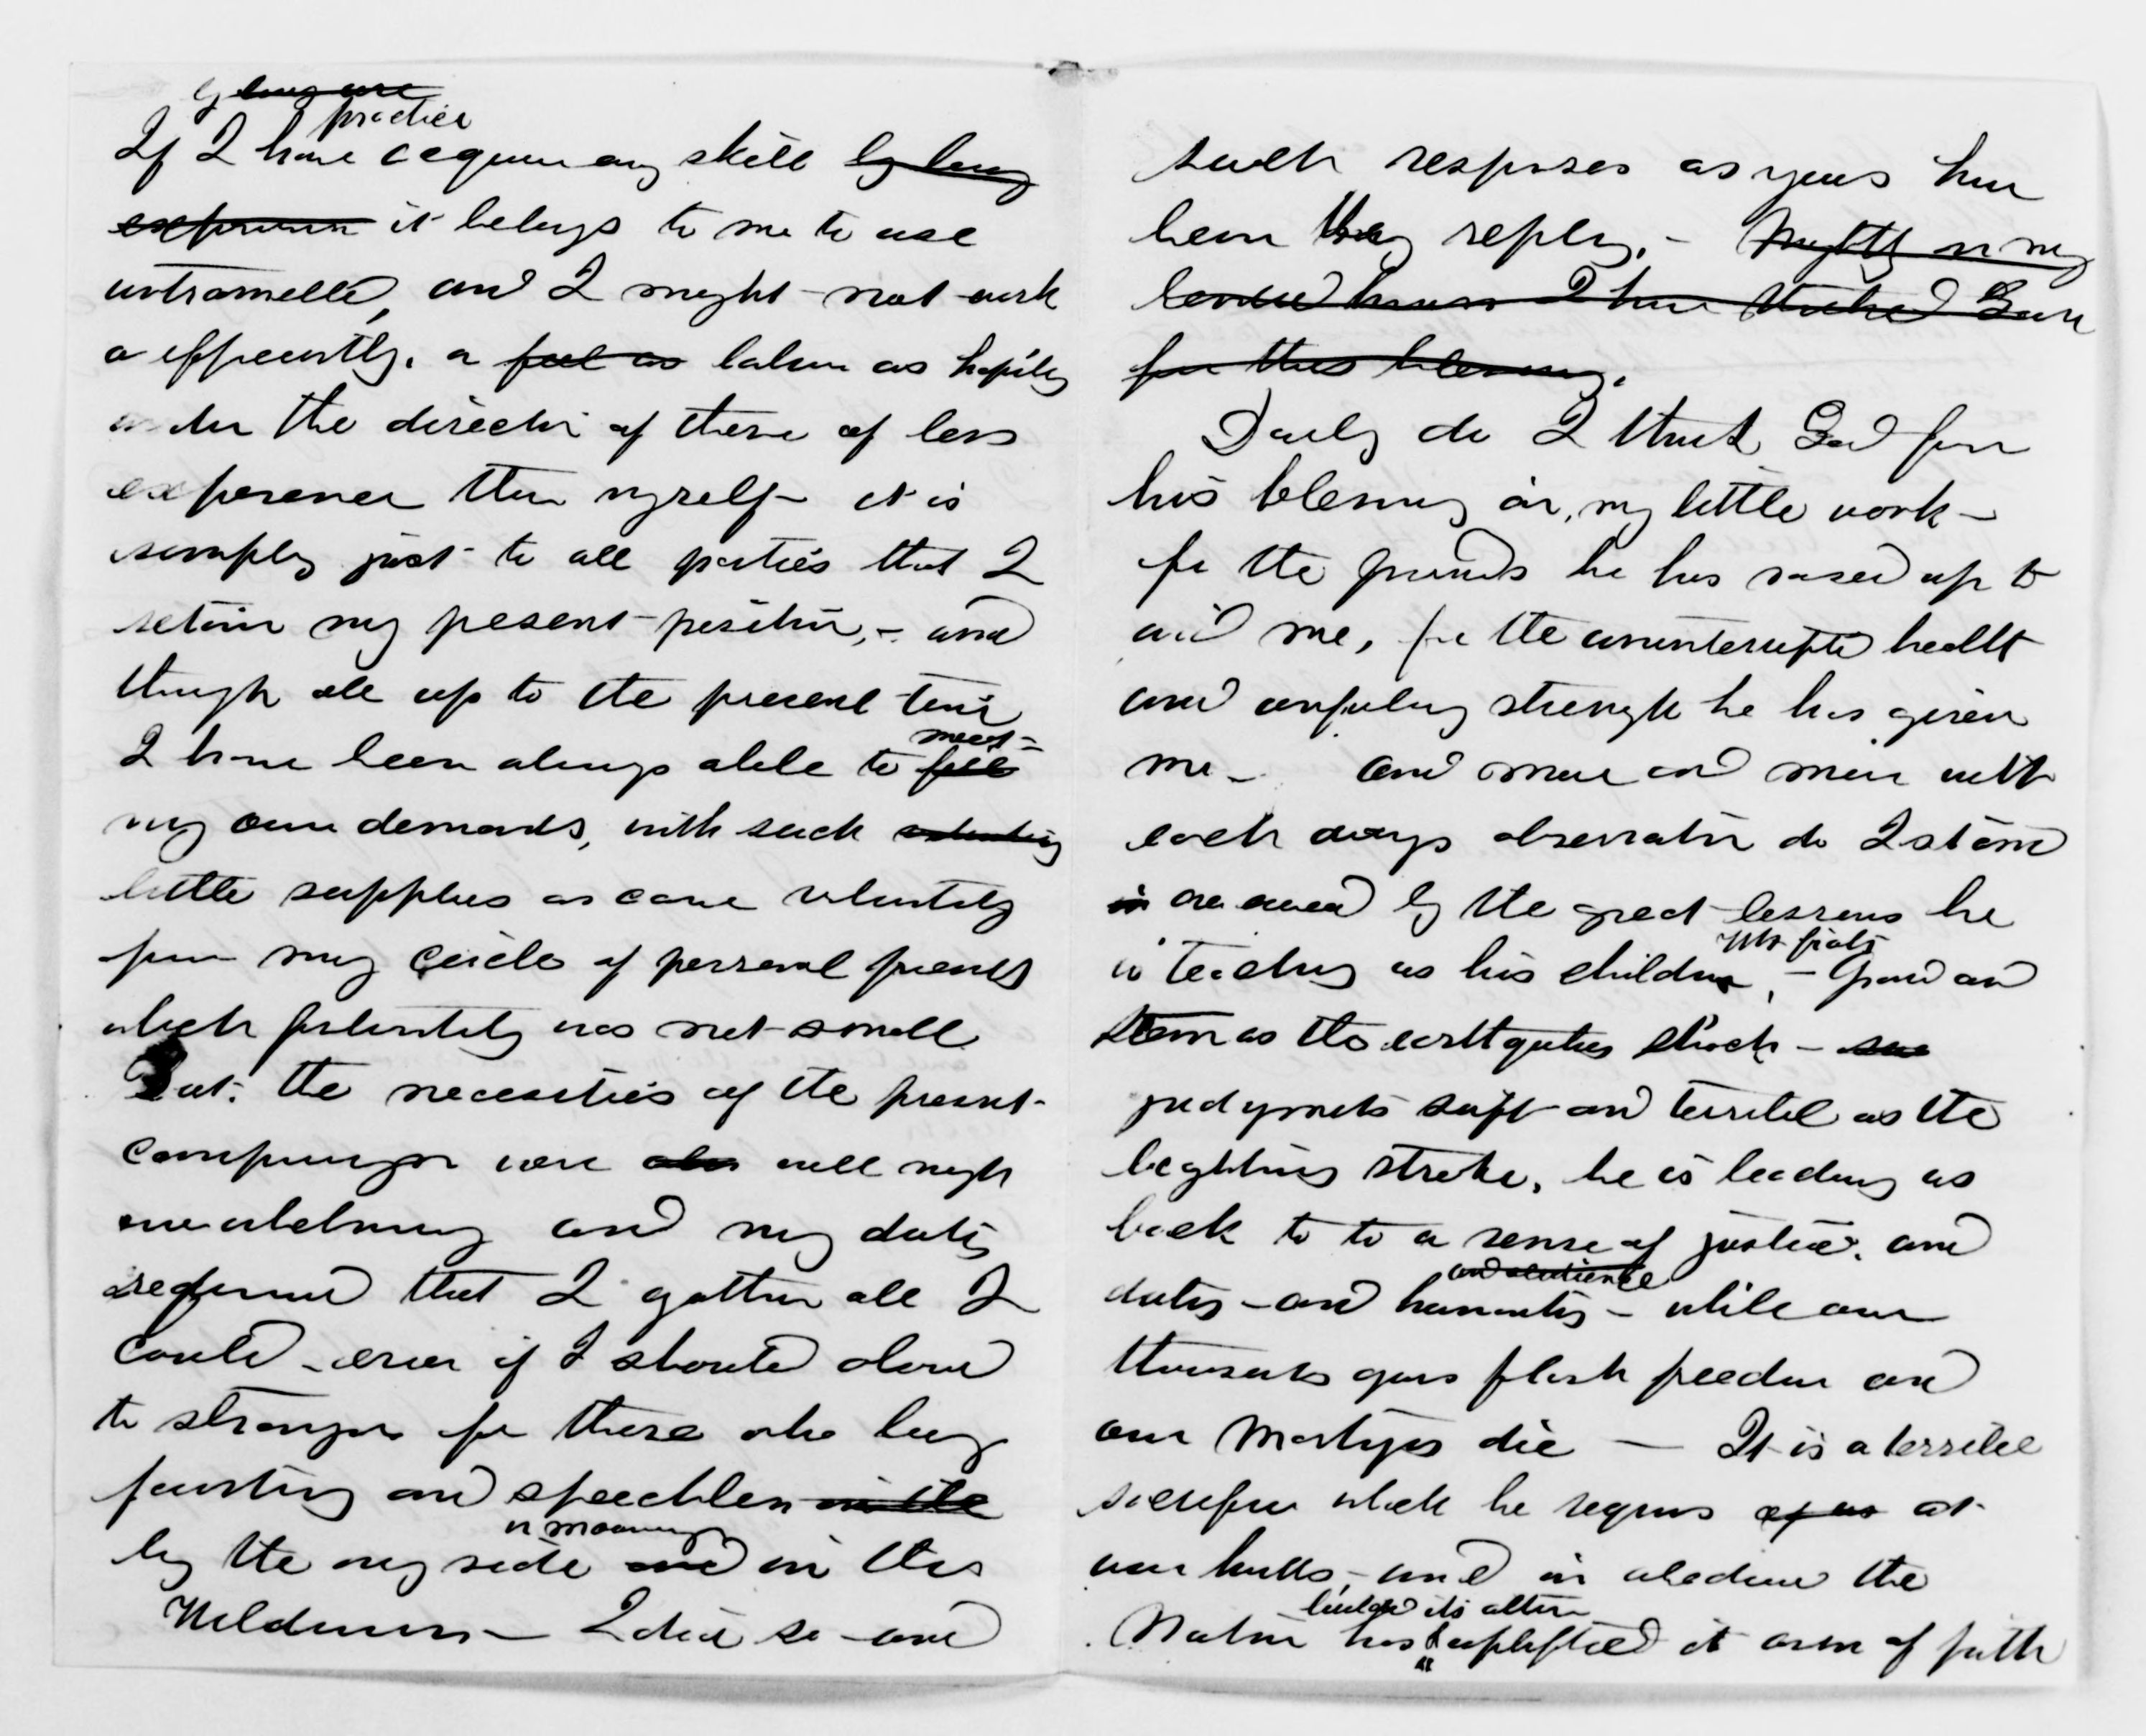 by long use
practice
If I have acquired any skill by long
experience it belongs to me to use
untramelled, and I might not work
a efficiently. a feel as labor as hapily
under the direction of those of less
experience than myself it is
simply just to all parties that I
retain my present position, - and
though all up to the present time
meet
I have been always able to fill
my own demands, with such
little supplies as came voluntarily
from my circle of personal friends
which fortunately was not small
But. the necessities of the present
campaign were also well nigh
overwhelming and my duty
required that I gather all I
could - even if I shouted aloud
to strangers for those who lay
fainting and speechless in the
or moaning
by the way side and in the
Wilderness - I did so and
such responses as yours have
been they reply. - Nightly in my
have thanked God
for this blessing.
Daily do I thank God for
his blessing on, my little work -
for the friends he has raised up to
aid me, for the uninterupted health
and unfailing strength he has given
me - and more and more with
each days observation do I stand
in overawed by the great lessons he
With fiats
is teaching us his children, - Grand and
stern as the earthquakes shock -
judgments swift and terrible as the
lightning stroke, he is leading us
back to to a sense of justice. and
and obedience
duty - and humanity - while our
thousands guns flash freedom and
our Martyrs die — It is a terrible
sacrifice which he requires of us at
our hands, - and in obedience the
builded its altar
Nation has uplifted it arm of faith